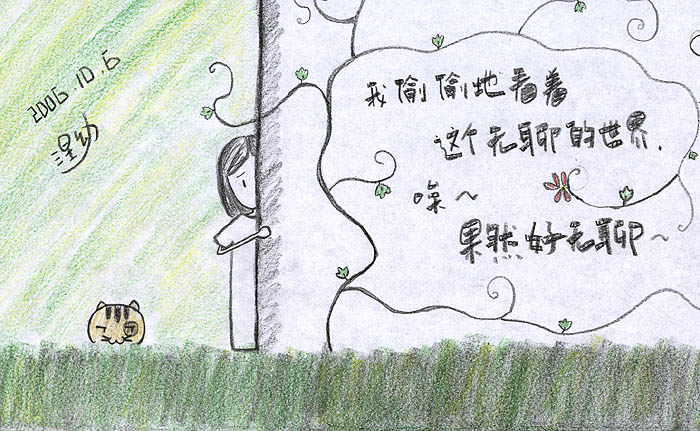 2006.10.6
我偷偷地看着
这个无聊的世界.
果然好无聊~